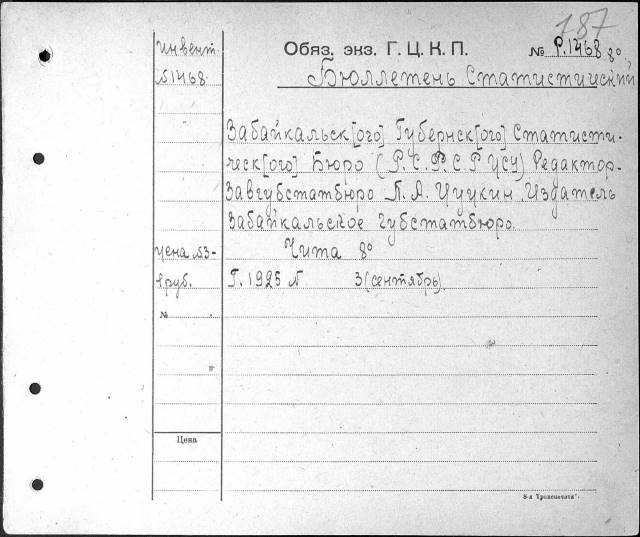 187
Инвент.
№1468
Обяз. экз. Г. Ц. К. П.
№ Р.1468 8°
Бюллетень Статистический
Забайкальск[ого] Губернск[ого] Статисти-
ческ[ого] Бюро (Р.С.Ф.С.Р ЦСУ) Редактор-
Завгубстатбюро П. А. Издатель
Забайкальское Губстатбюро.
Чита 8°
Цена №3-
1 руб.
Г. 1925 № 3 (сентябрь)
№
Цена
8-я "Транспечати".